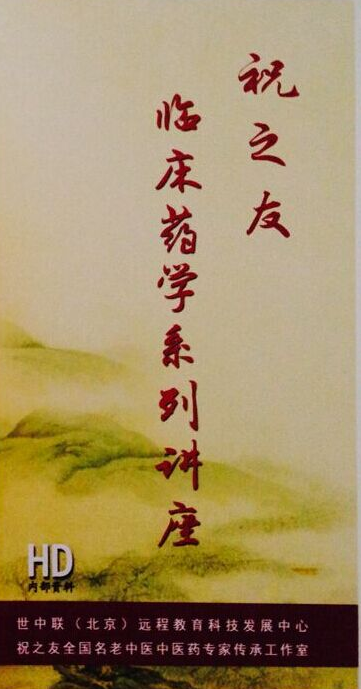 祝之友
临床药学系列讲座
HD
内部资料
世中联（北京）远程教育科技发展中心
祝之友全国名老中医中医药专家传承工作室